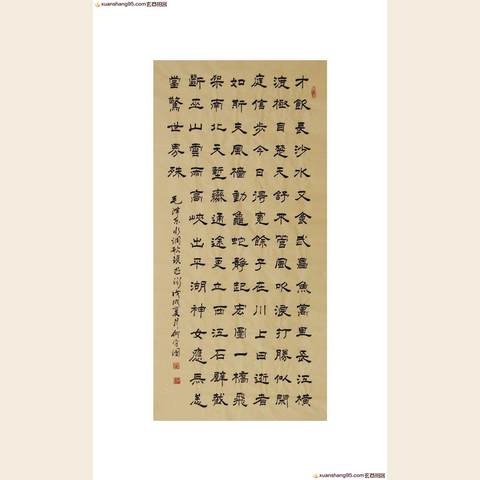 xuanshang95.com
才飲長沙水又食武昌魚萬里長江橫
渡極目楚天舒不管風吹浪打勝似閑
庭信步今日得寬餘子在川上曰逝者
如斯夫風檣動龜蛇靜起宏圖一橋飛
架南北天塹變通途更立西江石壁截
斷巫山雲雨高峽出平湖神女應無恙
當驚世界殊
毛澤東水調歌頭游泳戊戌夏月
xuanshang95.com